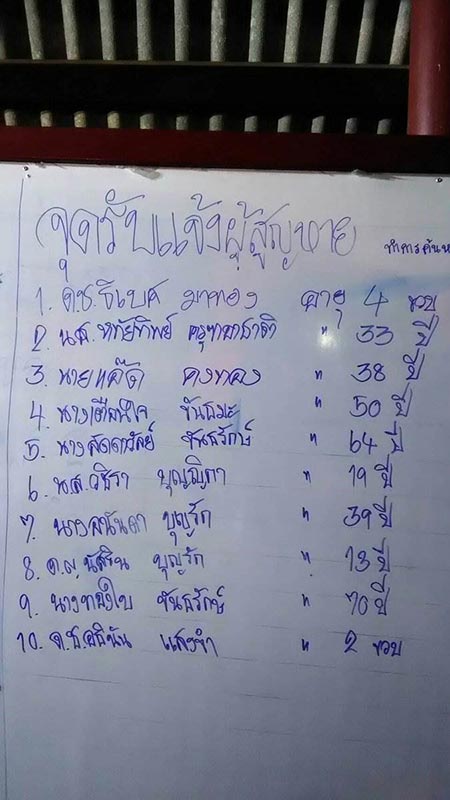 จุดรับแจ้งผู้สูญหาย
ทำการค้นห
1. ด.ช.ธิเบศ มาทอง อายุ 4 ขวบ
2. น.ส. หทัยทิพย์ " 33 ปี
3. นาย คงทอง " 38 ปี
4. นางเตือนใจ " 50 ปี
5. นางลัดดาวัลย์ ขันธรักษ์ " 64 ปี
6. น.ส.วชิรา " 19 ปี
7. นาง บุญรัก " 39 ปี
8. ด.ญ. บุญรัก " 13 ปี
9. นางทองใบ ขันธรักษ์ " 70 ปี
10. ด.ช. แสงขำ " 2 ขวบ